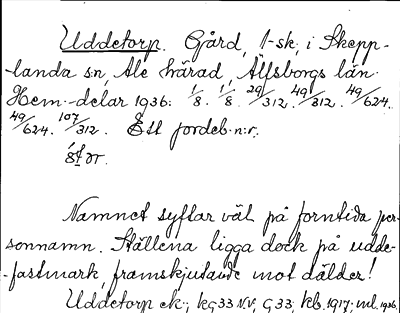 Uddetorp. Gård, 1-sk, i Skepp-
-landa sn, Ale härad, Älfsborgs län.
Hem.-delar 1936: 1/8. 1/8. 29/312. 49/312. 49/624.
49/624. 107/312. Ett jordeb.n:r.
Namnet syftar väl på forntida per-
sonnamn. Ställena ligga dock på udde-
-fastmark, framskjutande mot dälder!
Uddetorp ek.; kg 33 N.V., G 33, kb. 1917; ml. 1936.